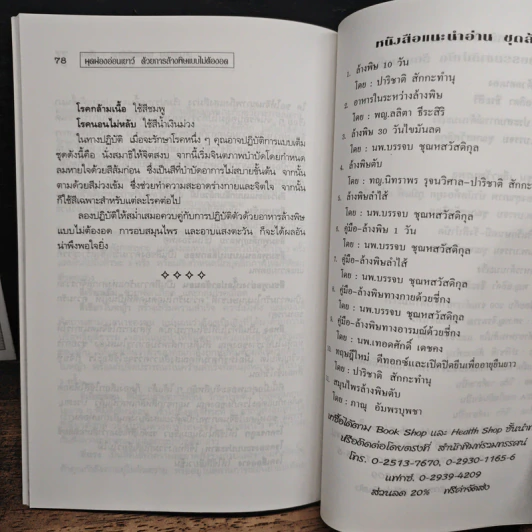 78
ผุดผ่องอ่อนเยาว์ ด้วยการล้างพิษแบบไม่ต้องอด
โรคกล้ามเนื้อ ใช้สีชมพู
โรคนอนไม่หลับ ใช้สีน้ำเงินม่วง
ในทางปฏิบัติ เมื่อจะรักษาโรคหนึ่ง ๆ คุณอาจปฏิบัติการแบบเต็ม
ชุดดังนี้คือ นั่งสมาธิให้จิตสงบ จากนี้เริ่มจินตภาพบำบัดโดยกำหนด
ลมหายใจด้วยสีส้มก่อน ซึ่งเป็นสีที่บำบัดอาการไม่สบายขั้นต้น จากนั้น
ตามด้วยสีม่วงเข้ม ซึ่งช่วยทำความสะอาดร่างกายและจิตใจ จากนั้น
ก็ใช้สีเฉพาะสำหรับแต่ละโรคต่อไป
ลองปฏิบัติให้สม่ำเสมอควบคู่กับการปฏิบัติตัวด้วยอาหารล้างพิษ
แบบไม่ต้องอด การอบสมุนไพร และอาบแสงตะวัน ก็จะได้ผลอัน
น่าพึงพอใจยิ่ง
หนังสือแนะนำอ่าน ชุดล้
1. ล้างพิษ 10 วัน
โดย : ปาริชาติ สักกะทำนุ
2. อาหารในระหว่างล้างพิษ
โดย : พญ.ลลิตา ธีระสิริ
3. ล้างพิษ 30 วันไขมันลด
โดย : นพ.บรรจบ ชุณหสวัสดิกุล
4. ล้างพิษตับ
โดย : ทญ.นิทราพร รุจนวิศาล-ปาริชาติ สักกะ
ล้างพิษลำไส้
โดย : นพ.บรรจบ ชุณหสวัสดิกุล
คู่มือ-ล้างพิษ 1 วัน
โดย : นพ.บรรจบ ชุณหสวัสดิกุล
คู่มือ-ล้างพิษลำไส้
โดย : นพ.บรรจบ ชุณหสวัสดิกุล
คู่มือ-ล้างพิษทางกายด้วยชี่กง
คู่มือ-ล้างพิษทางอารมณ์ด้วยชี่กง
โดย : นพ.เทอดศักดิ์ เดชคง
ทฤษฎีใหม่ ดีทอกซ์และเปิดปิดยีนเพื่ออายุยืนยาว
โดย : ปาริชาติ สักกะทำนุ
สมุนไพรล้างพิษตับ
โดย : ภาณุ อัมพรบุพชา
หาซื้อได้ตาม Book Shop และ Health Shop ชั้นนำ
หรือติดต่อโดยตรงที่ สำนักพิมพ์รวมทรรศน์
โทร. 0-2513-7670, 0-2930-1165-6
แฟกซ์. 0-2939-4209
ส่วนลด 20% ฟรีค่าจัดส่ง